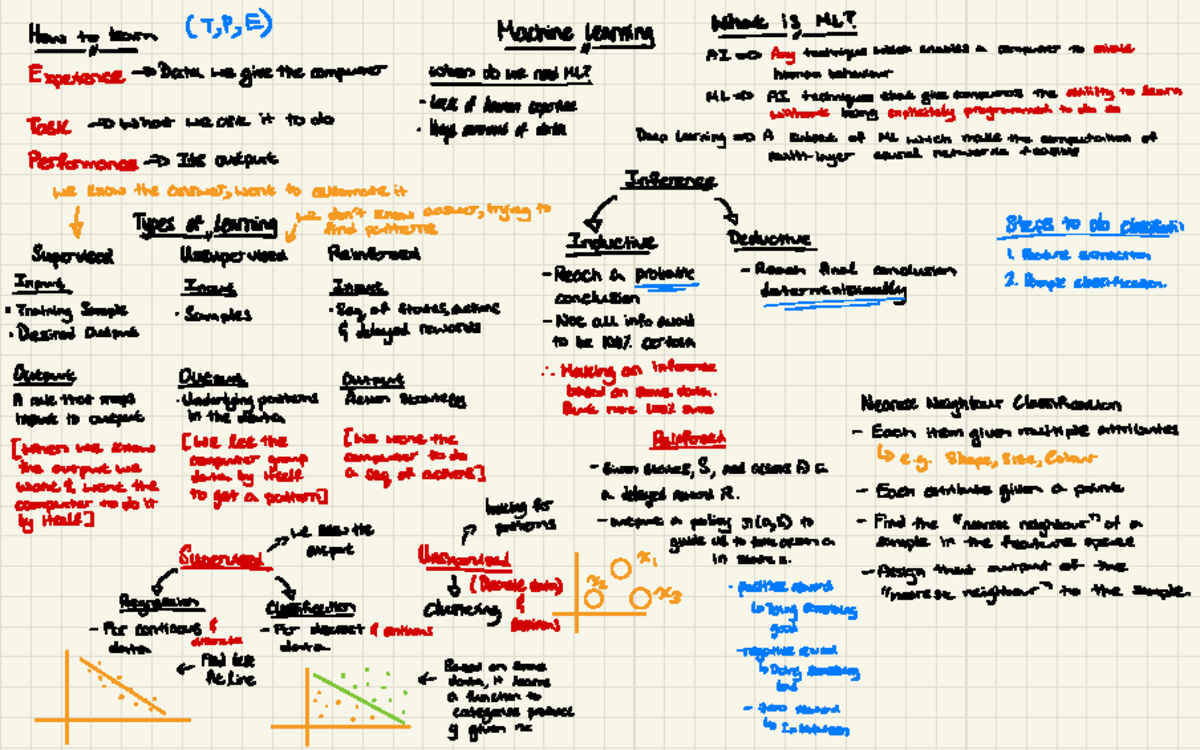 How to learn
(T, P, E)
Experience → Data we give the computer
Task → What we ask it to do
Performance → Its output
Machine Learning
When do we need ML?
- Lack of human expertise
- Huge amount of data
What is ML?
AI => Any technique which enables a computer to mimic
human behaviour
ML => AI techniques that give computers the ability to learn
without being explicitely programmed to do so
Deep Learning => A subset of ML which make the computation of
multi-layer neural networks feasible
we know the answer, want to automate it
we don't know answer, trying to
find patterns
Types of Learning
Supervised
Input
• Training Sample
• Desired Output
Output
A rule that maps
input to output
[When we know
the output we
want & want the
computer to do it
by itself]
Unsupervised
Input
• Samples
Output
• Underlying patterns
in the data
[We let the
computer group
data by itself
to get a pattern]
Reinforced
Input
• Seq of states, actions
& delayed rewards
Output
Action Strategy
[We want the
computer to do
a seq of actions]
Inference
Inductive
- Reach a probable
conclusion
- Not all info avail
to be 100% certain
∴ Making an inference
based on some data.
Deductive
- Reach final conclusion
Steps to do
1. Feature extraction
2. Sample classification
Reinforced
- Given states, S, and actions
a delayed reward R.
- output a policy π(a,s) to
guide us to take action a
in state s.
- positive reward
↳ Doing something
good
- negative reward
↳ Doing something
bad
- zero reward
↳ In between
Nearest Neighbour Classification
- Each item given multiple attributes
↳ e.g. Shape, Size, Colour
- Each attribute given a points
- Find the "nearest neighbour" of a
sample in the feature space
- Assign that output of the
"nearest neighbour" to the sample.
Supervised
→ we know the
output
Regression
- For continous & discrete
data
← Find best
fit line
Classification
- For discrete &
data
← Based on some
data, it learns
a function to
categorise product
y given x
Unsupervised
looking for
patterns
(Discrete data)
&
Clustering
x1
x2
x3